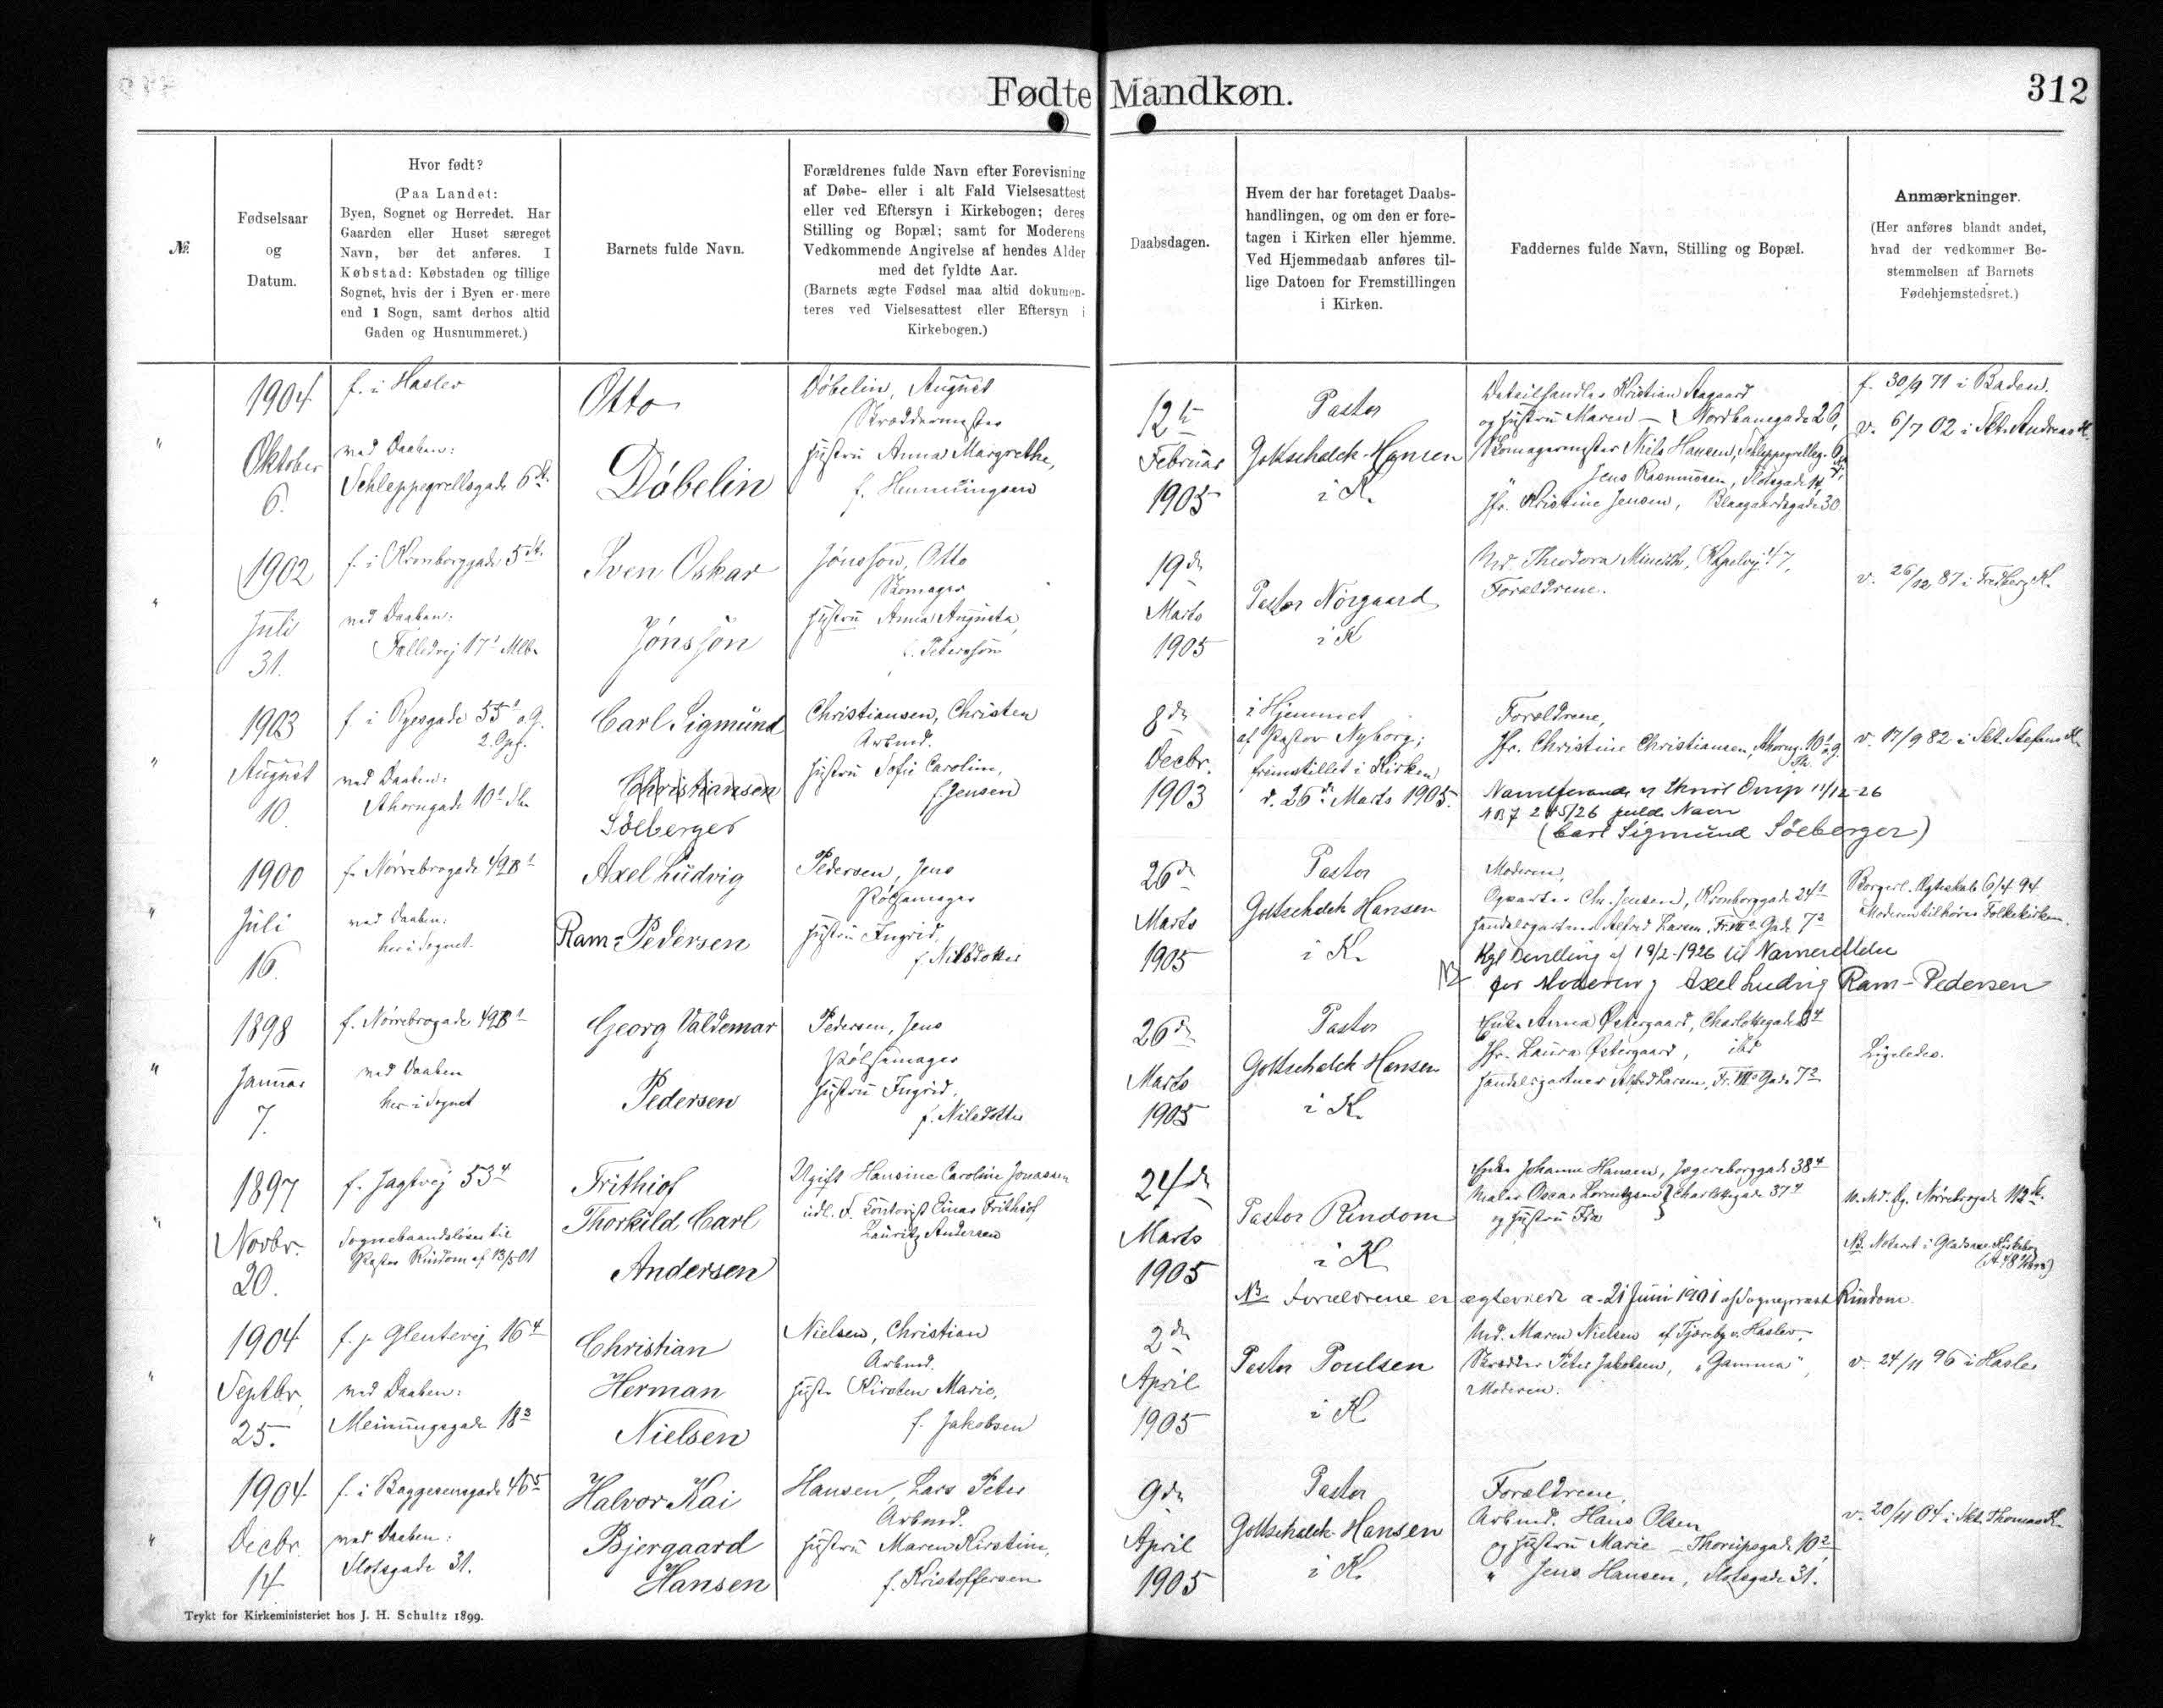 Fødte Mandkøn.
312
№
Fødselsaar
og
Datum.
Hvor født?
(Paa Landet:
Byen, Sognet og Herredet. Har
Gaarden eller Huset særeget
Navn, bør det anføres. I
Købstad: Købstaden og tillige
Sognet, hvis der i Byen er mere
end 1 Sogn, samt derhos altid
Gaden og Husnummeret.)
Barnets fulde Navn.
Forældrenes fulde Navn efter Forevisning
af Døbe- eller i alt Fald Vielsesattest
eller ved Eftersyn i Kirkebogen; deres
Stilling og Bopæl; samt for Moderens
Vedkommende Angivelse af hendes Alder
med det fyldte Aar.
(Barnets ægte Fødsel maa altid dokumen-
teres ved Vielsesattest eller Eftersyn i
Kirkebogen.)
Daabsdagen.
Hvem der har foretaget Daabs-
handlingen, og om den er fore-
tagen i Kirken eller hjemme.
Ved Hjemmedaab anføres til-
lige Datoen for Fremstillingen
i Kirken.
Faddernes fulde Navn, Stilling og Bopæl.
Anmærkninger.
(Her anføres blandt andet,
hvad der vedkommer Be-
stemmelsen af Barnets
Fødehjemstedsret.)
"
1904
Oktober
6.
f. i Haslev
ved Daaben:
Schleppegrellsgade 6 St.
Otto
Döbelin
Döbelin, August
Skræddermester
Hustru Anna Margrethe,
f. Henningsen
12te
Februar
1905
Pastor
Gottschalck-Hansen
i K.
Detailhandler Kristian Aagaard
og Hustru Maren – Nordbanegade 26,
Skomagermester Niels Hansen, Schleppegrellsg. 6
Jens Rasmussen, Slotsgade 14
Jfr. Kristine Jensen, Blaagaardsgade 30
f. 30/9 71 i Baden.
v. 6/7 02 i Skt. Andreas K.
"
1902
Juli
31.
f. i Kronborggade 5 St.
ved Daaben:
Fælledvej 17 1 Mlb.
Sven Oskar
Jönsson
Jönsson, Otto
Skomager
Hustru Anna Augusta,
f. Petersson
19de
Marts
1905
Pastor Nørgaard
i K
Md. Theodora Minckk, Kapelvej 47,
Forældrene.
v. 26/12 87 i Fredberg K.
"
1903
August
10.
f. i Ryesgade 55 1 o.G.
2. Opg.
ved Daaben:
Ahorngade 10 1 Sh.
Carl Sigmund
Christiansen
Söeberger
Christiansen, Christen
Arbmd.
Hustru Sofie Caroline,
f. Jensen
8de
Decbr.
1903
i Hjemmet
af Pastor Nyborg;
fremstillet i Kirken
d. 26de Marts 1905.
Forældrene,
Jfr. Christine Christiansen, Ahorng. 10 1 o.g.
11/12-26
245/26 fulde Navn
(Carl Sigmund Söeberger)
v. 17/9 82 i Skt. Stefans K.
"
1900
Juli
16.
f. Nørrebrogade 49B 1
ved Daaben:
her i Sognet.
Axel Ludvig
Ram=Pedersen
Pedersen, Jens
Pølsemager
Hustru Ingrid,
f. Nilsdotter
26de
Marts
1905
Pastor
Gottschalck Hansen
i K.
Moderen,
Opvarter Chr. Jensen, Kronborggade 24 1
Handelsgartner Alfred Larsen, Fr. VII's Gade 7 2
Kgl Bevilling af 19/2-1926 til Navneret
for Moderen; Axel Ludvig Ram-Pedersen
Borgerl. Ægteskab 6/4 94.
Moderen tilhører Folkekirken.
"
1898
Januar
7.
f. Nørrebrogade 49B 1
ved Daaben
her i Sognet
Georg Valdemar
Pedersen
Pedersen, Jens
Pølsemager
Hustru Ingrid,
f. Nilsdotter
26de
Marts
1905
Pastor
Gottschalck Hansen
i K.
Enke Anna Østergaard, Charlottegade 3 4
Jfr. Laura Østergaard, ibd
Handelsgartner Alfred Larsen, Fr. VII's Gade 7 2
Ligeledes.
"
1897
Novbr.
20.
f. Jagtvej 53 4
Sognebaandsløser til
Pastor Rindom af 13/5 01
Frithiof
Thorkild Carl
Andersen
Ugift Hansine Caroline Jonassen
udl. F. Kontorist Einar Frithiof
Lauritz Andersen
24de
Marts
1905
Pastor Rindom
i K
Enke Johanne Hansen, Jægersborggade 38 4
Maler Oscar Lorentzen } Charlottegade 37 4
og Hustru Ida
NB Forældrene er ægteviede d. 21 Juni 1901 af Sognepræst Rindom.
Nørrebrogade 112 St.
NB. Noteret i Gladsaxe Kirkebog
"
1904
Septbr.
25.
f. p. Glentevej 16 4
ved Daaben:
Meinungsgade 18 3
Christian
Herman
Nielsen
Nielsen, Christian
Arbmd.
Hustr. Kirsten Marie,
f. Jakobsen
2den
April
1905
Pastor Poulsen
i K
Md. Maren Nielsen af Tjæreby v. Haslev,
Skrædder Peter Jakobsen, "Gamma",
Moderen.
v. 24/11 96 i Haslev
"
1904
Decbr.
14
f. i Baggesensgade 46 5
ved Daaben:
Slotsgade 31.
Halvor Kai
Bjergaard
Hansen
Hansen, Lars Peter
Arbmd.
Hustru Maren Kirstine,
f. Kristoffersen
9de
April
1905
Pastor
Gottschalck-Hansen
i K.
Forældrene,
Arbmd. Hans Olsen
og Hustru Marie – Thorupsgade 10 2
" Jens Hansen, Slotsgade 31.
v. 20/11 04 i Skt. Thomas K.
Trykt for Kirkeministeriet hos J. H. Schultz 1899.